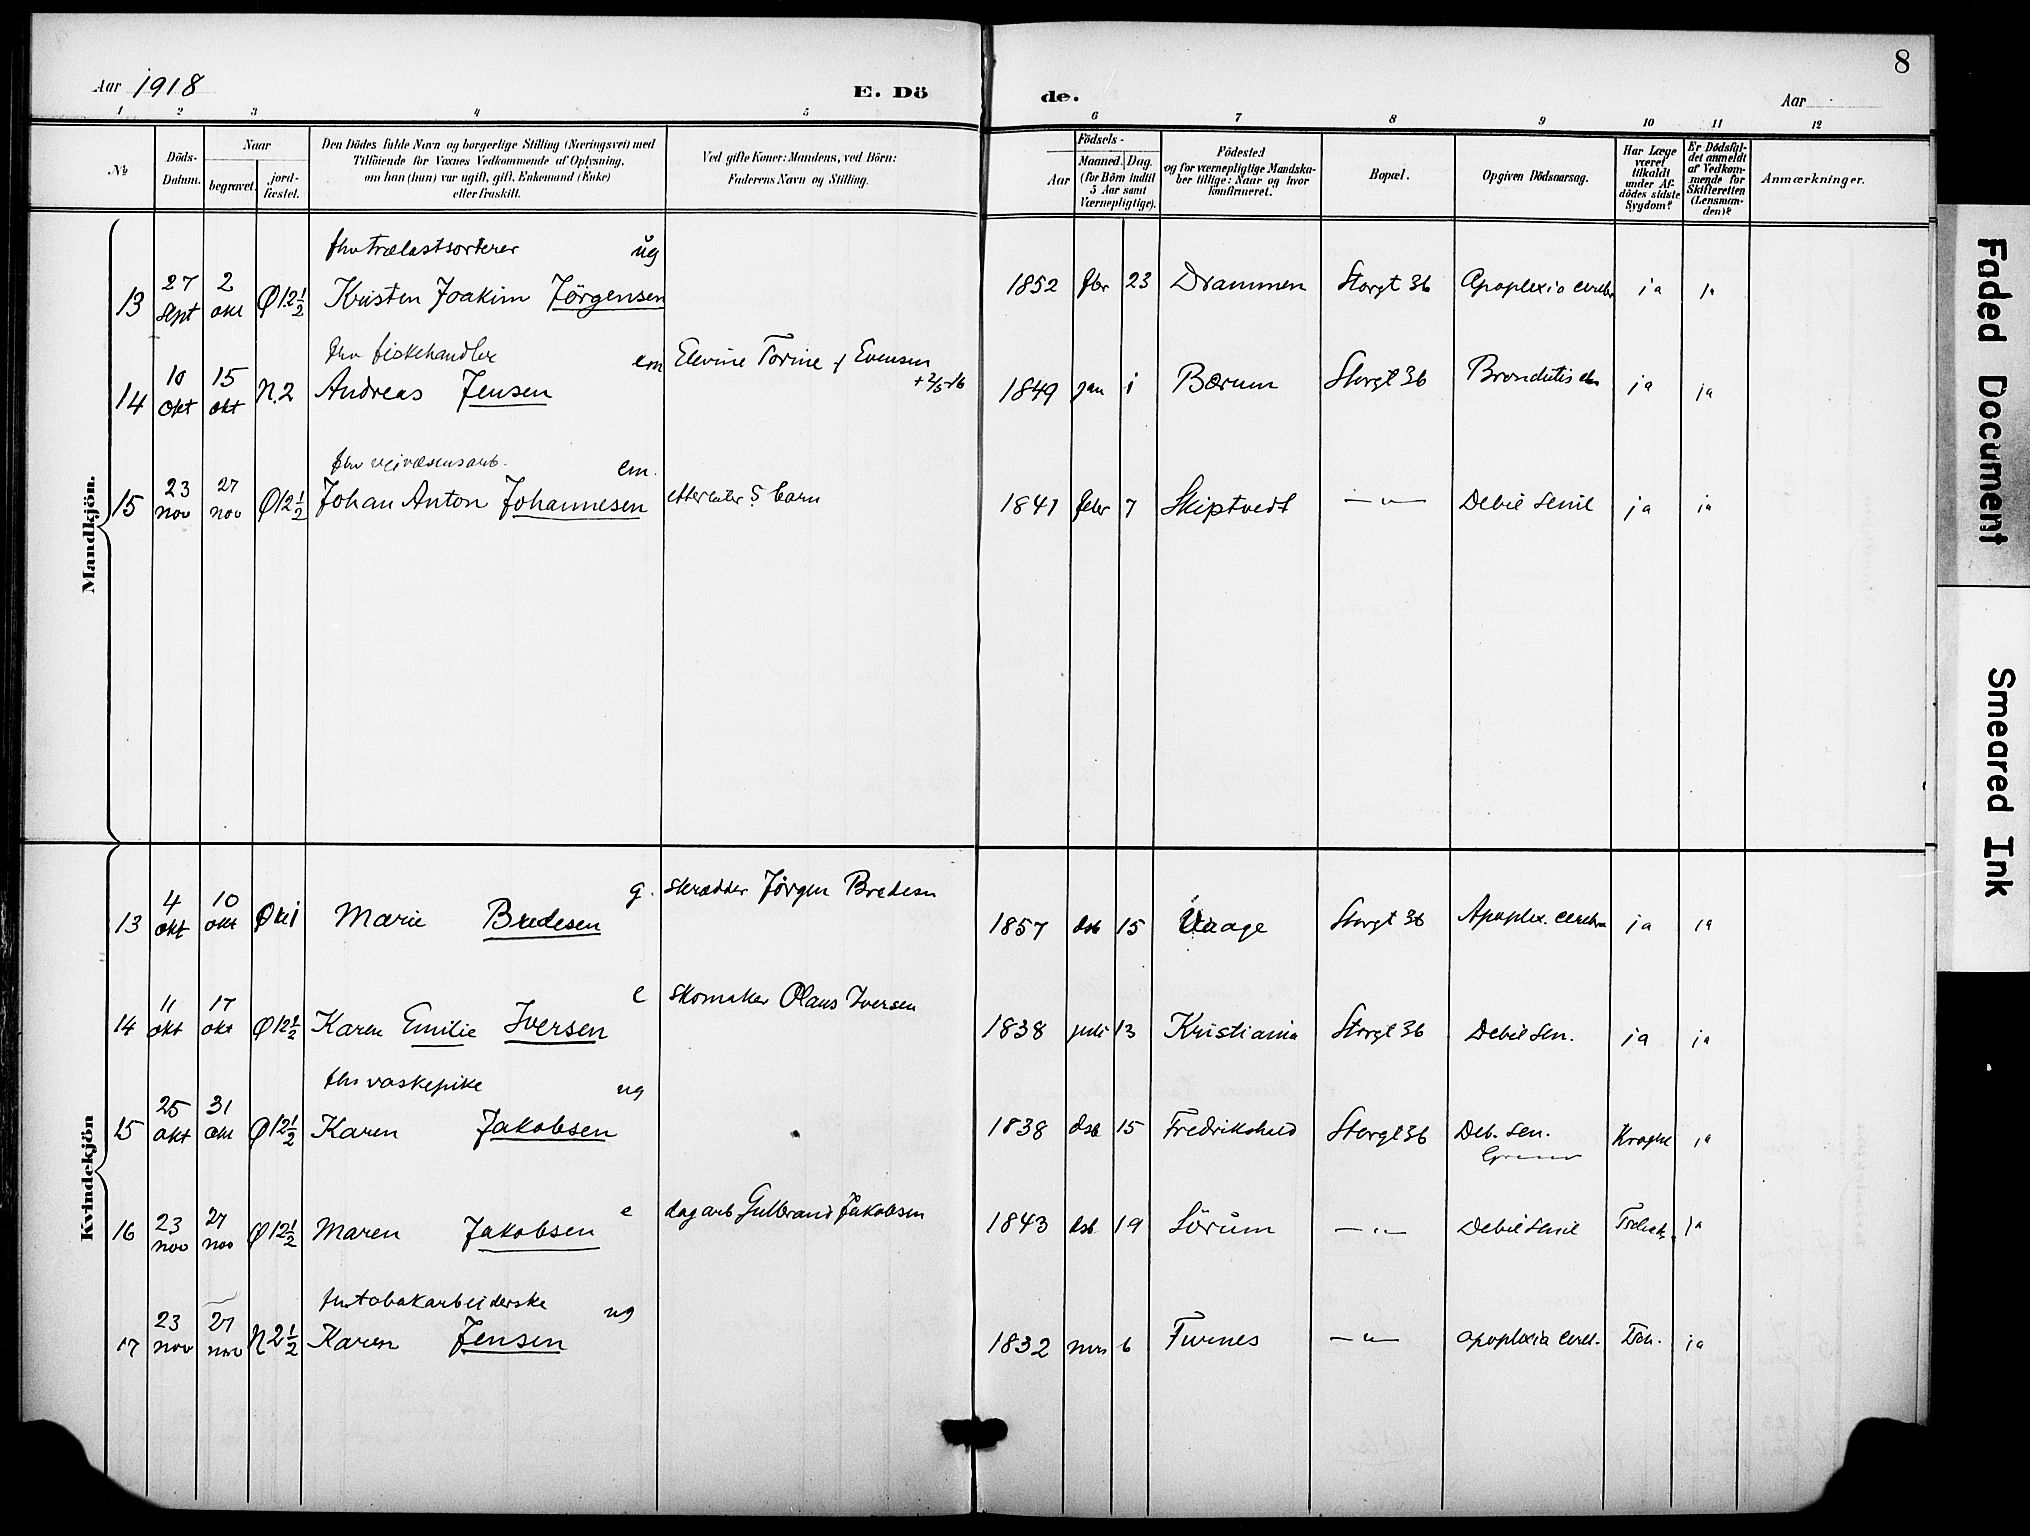 8
Aar 1918
E. Dö
de.
Aar
1 2 3 4 5 6 7 8 9 10 11 12
No
Döds-
Datum.
Naar
begravet.
jord-
fæstet.
Den Dödes fulde Navn og borgerlige Stilling (Næringsvei) med
Tilföiende for Voxnes Vedkommende af Oplysning,
om han (hun) var ugift, gift, Enkemand (Enke)
eller fraskilt.
Ved gifte Koner: Mandens, ved Börn:
Faderens Navn og Stilling.
Födsels-
Aar
Maaned. Dag.
(for Börn indtil
5 Aar samt
Værnepligtige).
Födested
og for værnepligtige Mandska-
ber tillige: Naar og hvor
konfirmeret.
Bopæl.
Opgiven Dödsaarsag.
Har Læge
været
tilkaldt
under Af-
dödes sidste
Sygdom?
Er Dödsfal-
det anmeldt
af Vedkom-
mende for
Skifteretten
(Lensman-
den)?
Anmærkninger.
Mandkjön.
fhv trælastsorterer ug
13 27 sept 2 okt Ø12½ Kristen Joakim Jörgensen 1852 fbr 23 Drammen Storgt 36 Apoplexia cerebr ja ja
fhv fiskehandler em Elevine Torine f Evensen
14 10 okt 15 okt N.2 Andreas Jensen 1849 jan 1 Bærum Storgt 36 ja ja
em.
15 23 nov 27 nov Ø12½ Johan Anton Johannesen efterlater 5 barn 1841 febr 7 Skiptvedt —〃— Debil senil ja ja
Kvindekjön
g. skrædder Jörgen Bredesen
13 4 okt 10 okt Marie Bredesen 1857 dsb 15 Vaage Storgt 36 Apoplex. cerebr ja ja
e skomaker Olaus Iversen
14 11 okt 17 okt Ø12½ Karen Emilie Iversen 1838 juli 13 Kristiania Storgt 36 Debil sen. ja ja
fhv vaskepike ug
15 25 okt 31 okt Ø12½ Karen Jakobsen 1838 dsb 15 Fredrikshald Storgt 36 Deb. sen. ja
e dagarb Gulbrand Jakobsen
16 23 nov 27 nov Ø12½ Maren Jakobsen 1843 dsb 19 Sörum —〃— Debil senil ja
fhv tobakarbeiderske ug
17 23 nov 27 nov N2½ Karen Jensen 1832 mrs 6 Furnes —〃— apoplexia cereb. ja
Faded Document
Smeared Ink